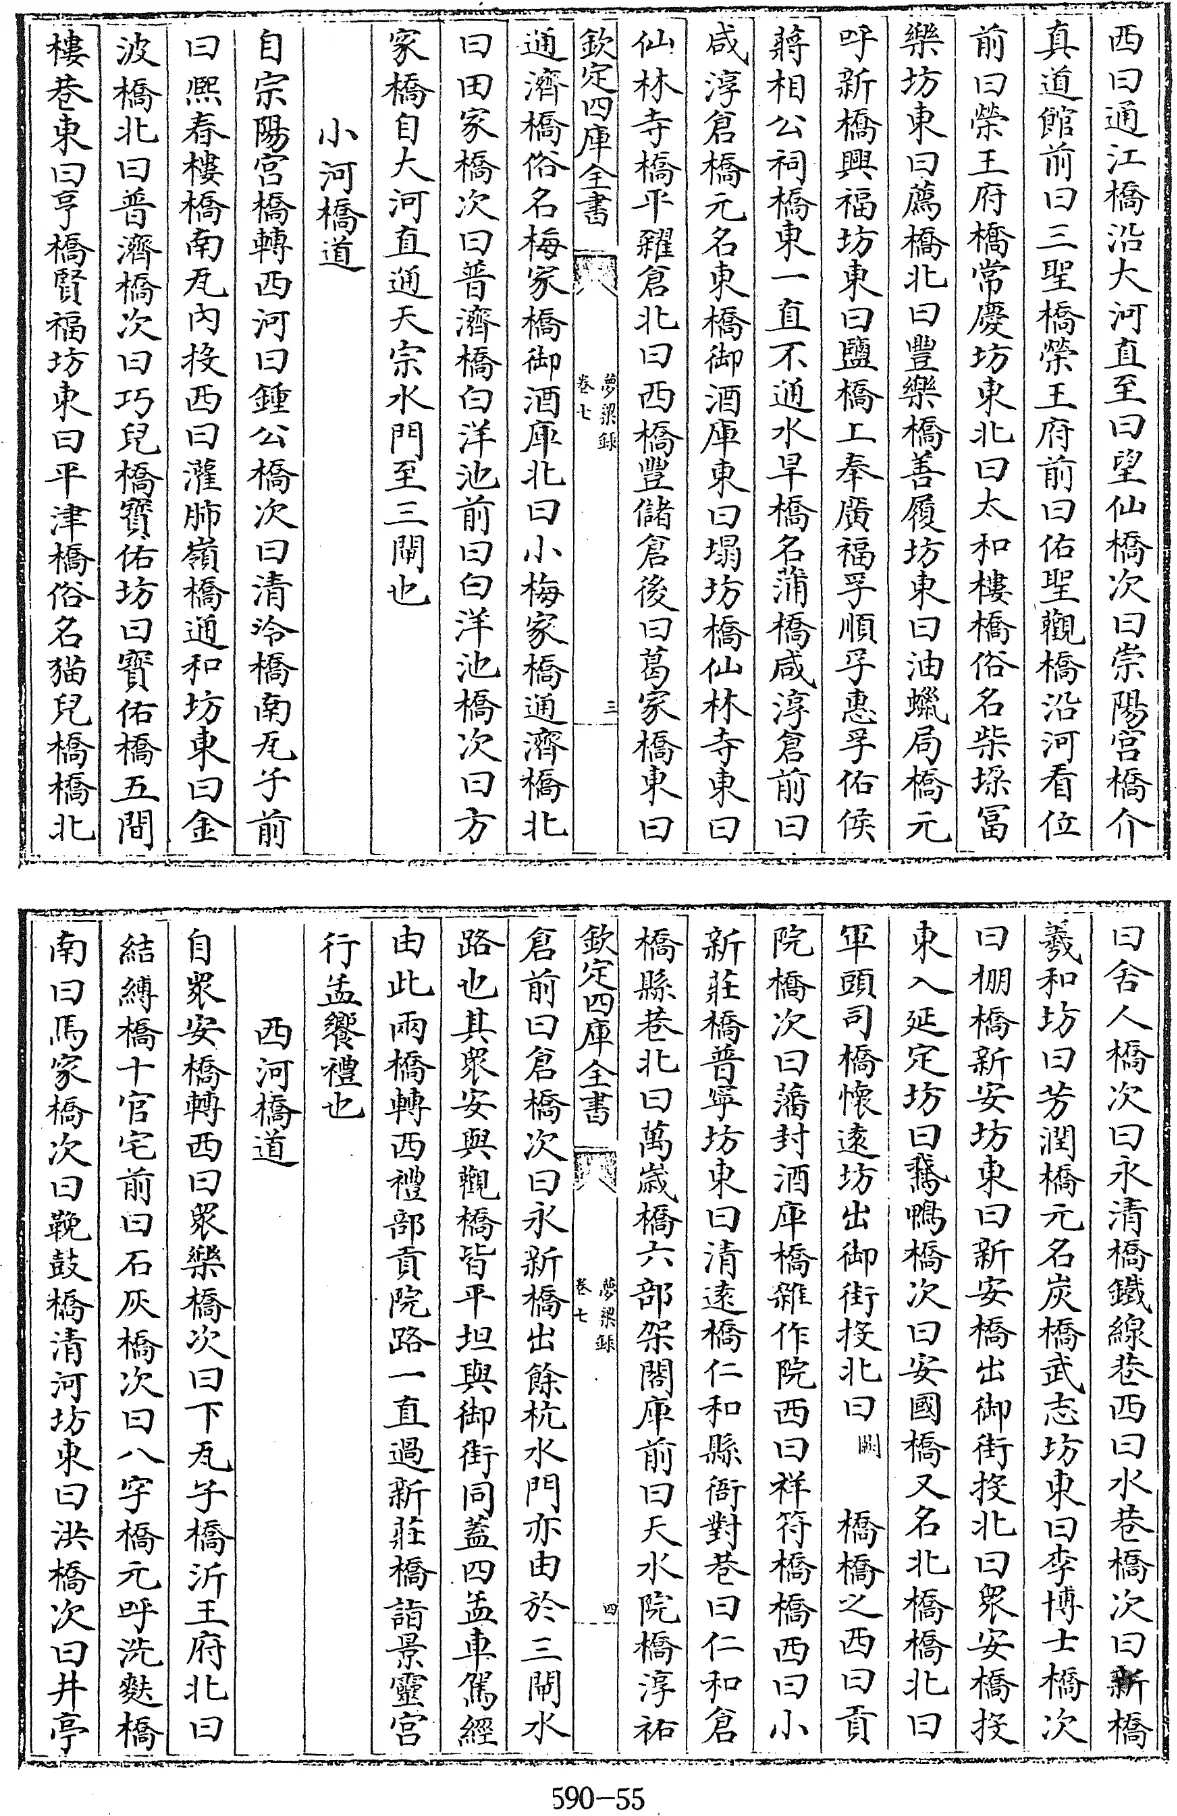 西曰通江橋沿大河直至曰望仙橋次曰崇陽宫橋介
真道館前曰三聖橋榮王府前曰佑聖觀橋沿河看位
前曰榮王府橋常慶坊東北曰太和樓橋俗名柴垜冨
樂坊東曰薦橋北曰豐樂橋善履坊東曰油蠟局橋元
呼新橋興福坊東曰鹽橋上奉廣福孚順孚惠孚佑侯
蔣相公祠橋東一直不通水旱橋名蒲橋咸淳倉前曰
咸淳倉橋元名東橋御酒庫東曰塌坊橋仙林寺東曰
仙林寺橋平糴倉北曰西橋豐儲倉後曰葛家橋東曰
欽定四庫全書
夢粱録
卷七
三
通濟橋俗名梅家橋御酒庫北曰小梅家橋通濟橋北
曰田家橋次曰普濟橋白洋池前曰白洋池橋次曰方
家橋自大河直通天宗水門至三閘也
小河橋道
自宗陽宫橋轉西河曰鍾公橋次曰清泠橋南瓦子前
曰熈春樓橋南瓦内投西曰灌肺嶺橋通和坊東曰金
波橋北曰普濟橋次曰巧兒橋寳佑坊曰寳佑橋五間
樓巷東曰亨橋賢福坊東曰平津橋俗名猫兒橋橋北
曰舍人橋次曰永清橋鐵線巷西曰水巷橋次曰新橋
羲和坊曰芳潤橋元名炭橋武志坊東曰李博士橋次
曰棚橋新安坊東曰新安橋出御街投北曰衆安橋投
東入延定坊曰鵞鴨橋次曰安國橋又名北橋橋北曰
軍頭司橋懷遠坊出御街投北曰闕橋橋之西曰貢
院橋次曰藩封酒庫橋雜作院西曰祥符橋橋西曰小
新莊橋普寧坊東曰清遠橋仁和縣衙對巷曰仁和倉
橋縣巷北曰萬歳橋六部架閣庫前曰天水院橋淳祐
欽定四庫全書
夢粱録
卷七
四
倉前曰倉橋次曰永新橋出餘杭水門亦由於三閘水
路也其衆安與觀橋皆平坦與御街同蓋四孟車駕經
由此兩橋轉西禮部貢院路一直過新莊橋詣景靈宫
行孟饗禮也
西河橋道
自衆安橋轉西曰衆樂橋次曰下瓦子橋沂王府北曰
結縛橋十官宅前曰石灰橋次曰八字橋元呼洗麩橋
南曰馬家橋次曰鞔鼓橋清河坊東曰洪橋次曰井亭
590-55